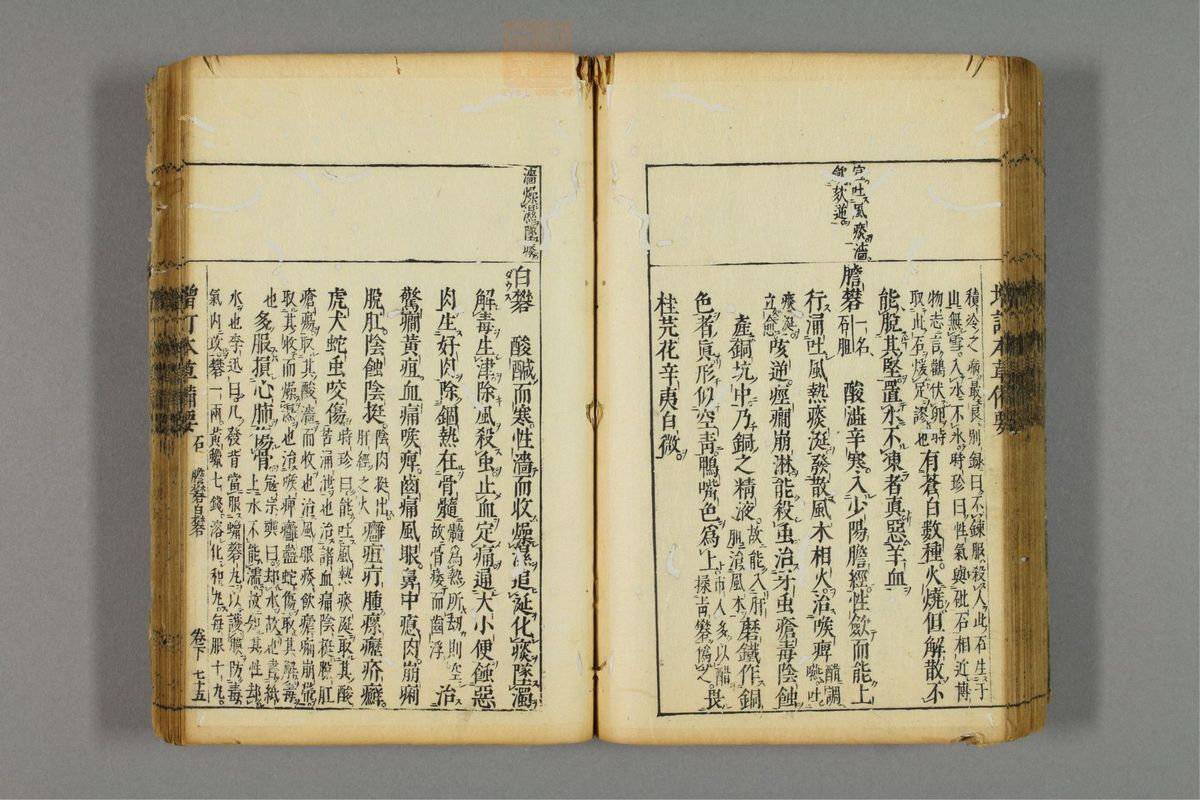 増訂本草備要
積冷之病最良別錄曰不鍊服殺人此石生于
山無雪入水不氷時珍曰性氣與砒石相近博
物志言鸛伏卵時
取此石煖足謬也有蒼白數種火燒但解散不
能脫其堅置水不凍者真惡羊血
宣吐風痰濇
斂欬逆
膽礬一名石膽 酸澁辛寒入少陽膽經性斂而能上
行涌吐風熱痰涎發散風木相火治喉痺醋調嚥吐
痰涎立愈欬逆痙癇崩淋能殺虫治牙虫瘡毒陰蝕
產銅坑中乃銅之精液故能入肝膽治風木磨鐵作銅
色者眞形似空靑鴨嘴色爲上市人多以醋揉靑礬僞之畏
桂芫花辛夷白微
濇燥濕墜痰
白礬 酸鹹而寒性濇而收燥濕追涎化痰墜濁
解毒生津除風殺虫止血定痛通大小便蝕惡
肉生好肉除錮熱在骨髓髓爲熱所劫則空故骨痿而齒浮治
驚癇黃疸血痛喉痺齒痛風眼鼻中瘜肉崩痢
脫肛陰蝕陰挺陰肉挺出肝經之火癰疽疔腫瘰癧疥癬
虎犬蛇虫咬傷時珍曰能吐風熱痰涎取其酸苦涌泄也治諸血痛陰挺脫肛
瘡瘍取其酸濇而收也治風眼痰飲瘧痢崩帶
取其收而燥濕也治喉痺癰蠱蛇傷取其解毒
也多服損心肺傷骨寇宗奭曰却水故也書紙上水不能濡故知其性却
水也李迅曰凢發背當服蠟礬丸以護膜防毒
氣內攻礬一兩黃蠟七錢溶化和丸每服十丸
増訂本草備要 石 膽礬白礬 卷下 七十五